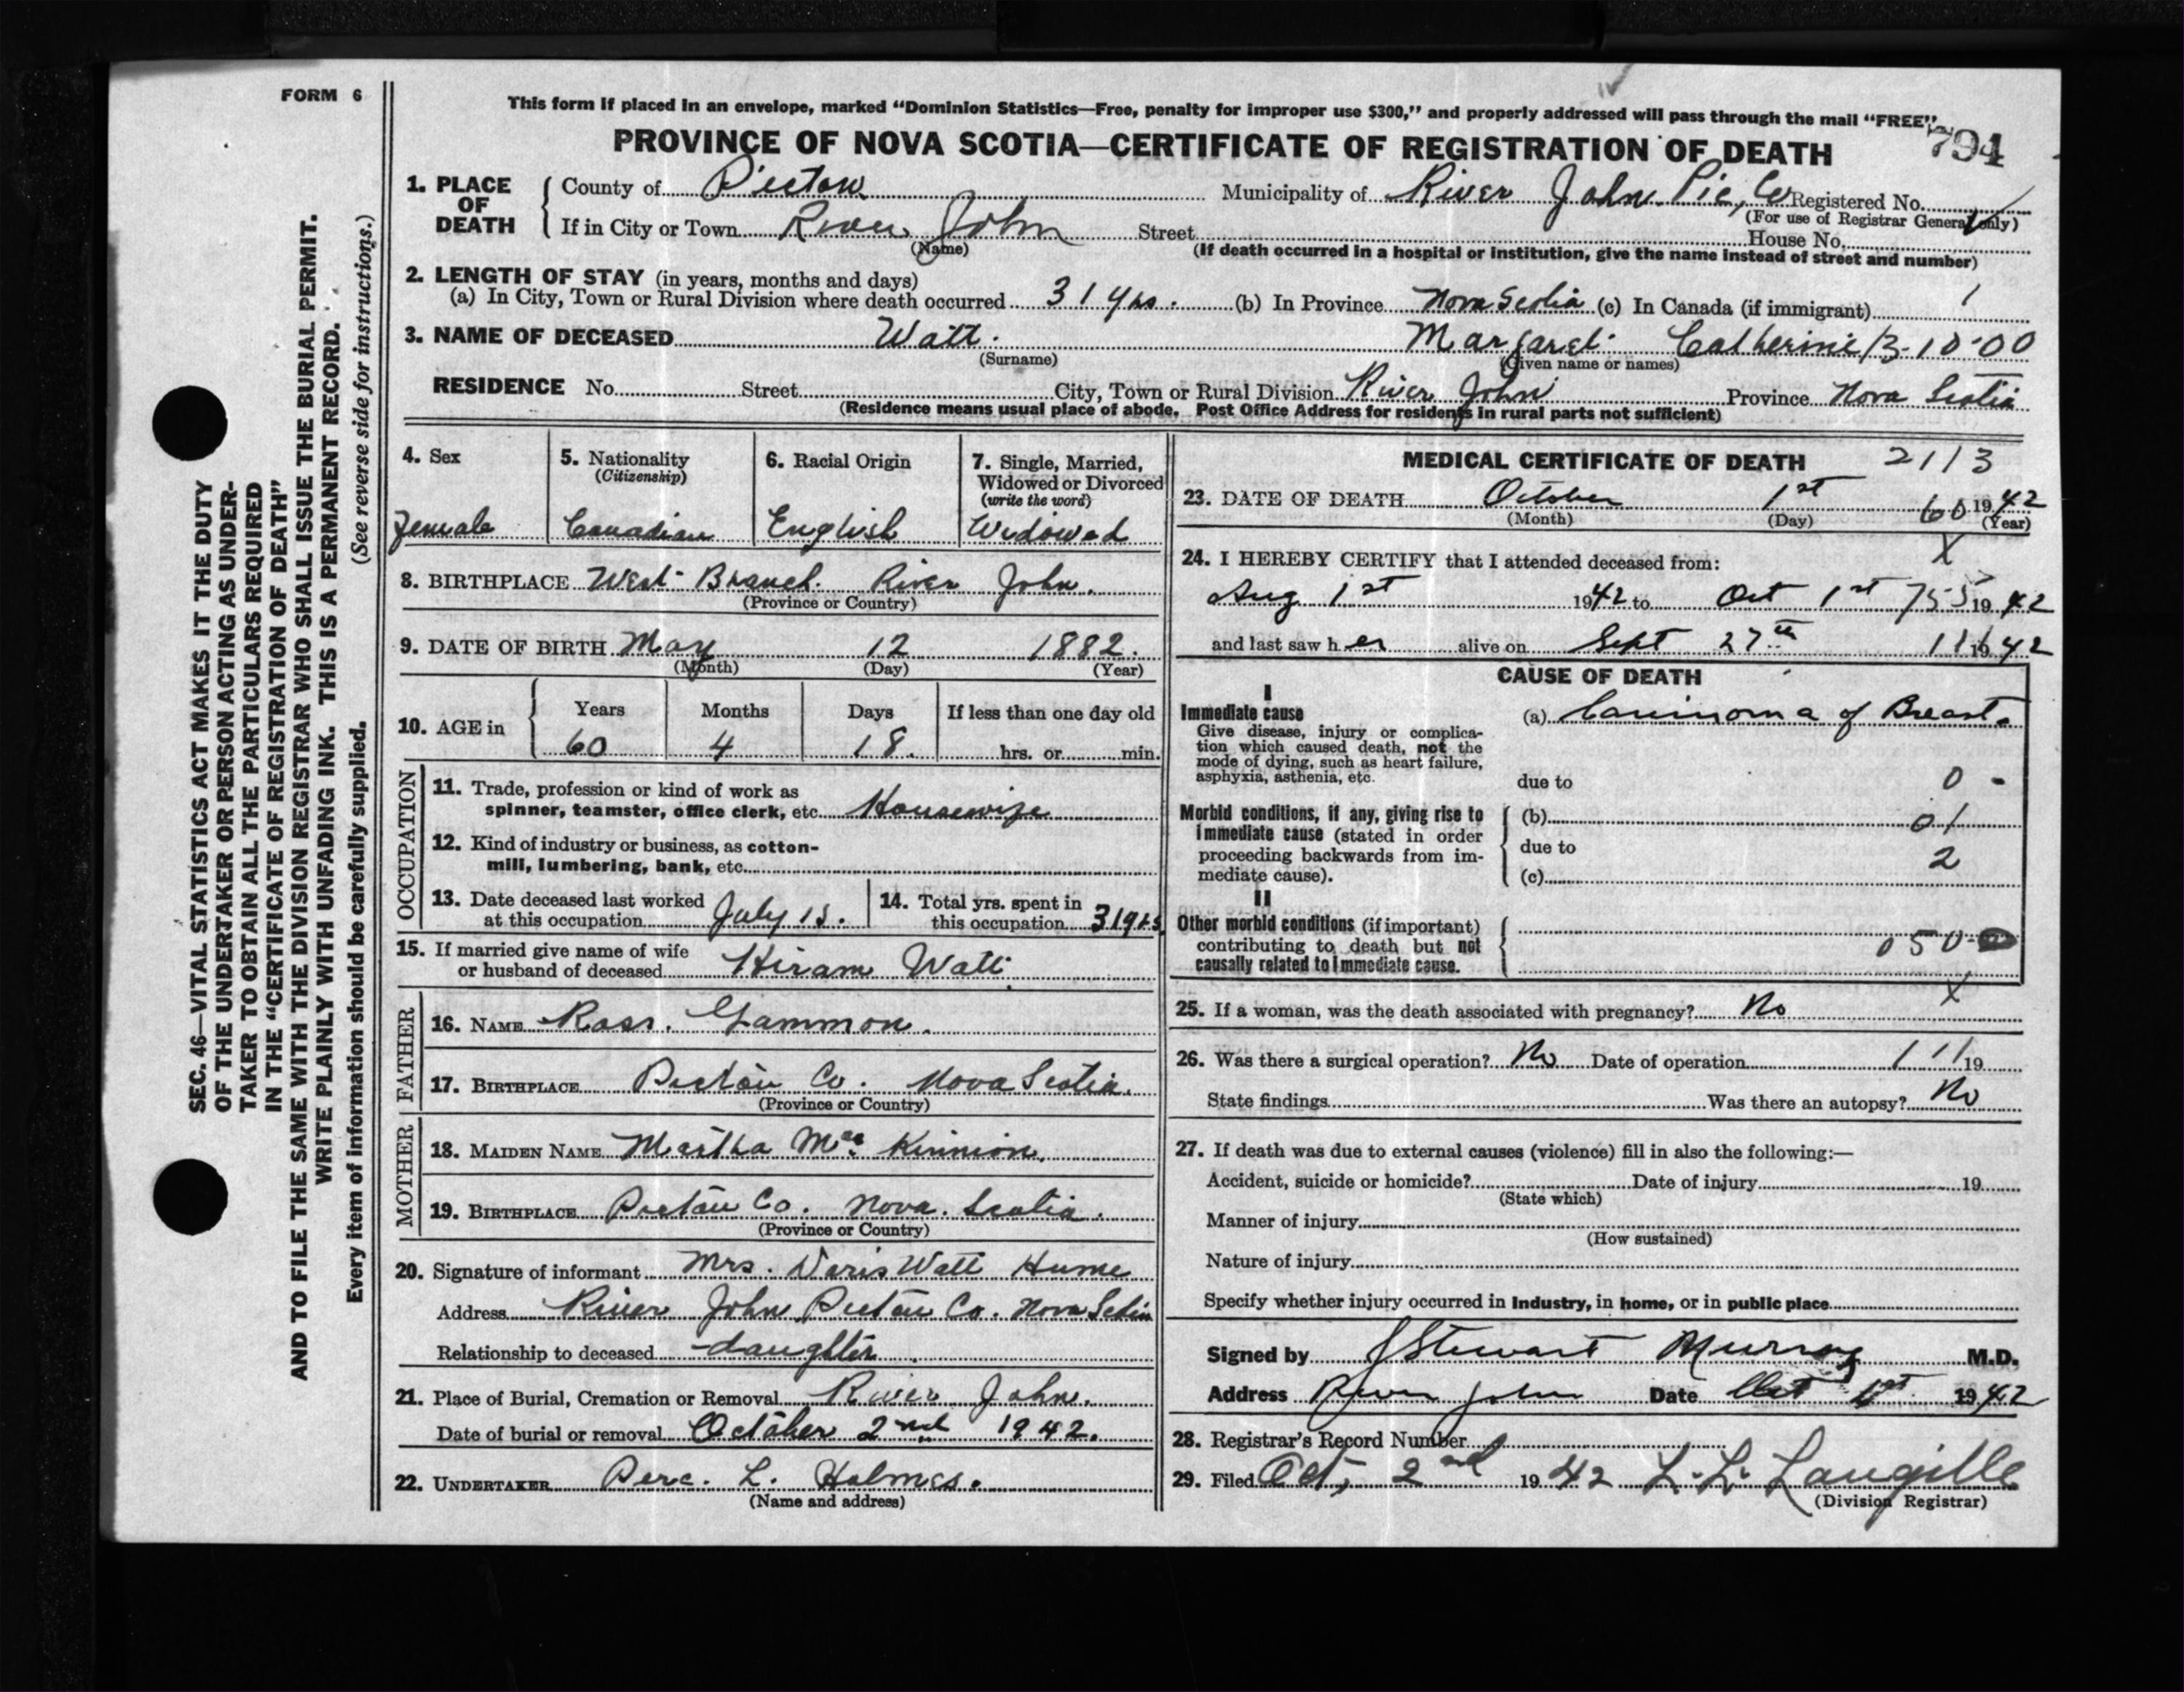 FORM 6
SEC. 46—VITAL STATISTICS ACT MAKES IT THE DUTY
OF THE UNDERTAKER OR PERSON ACTING AS UNDER-
TAKER TO OBTAIN ALL THE PARTICULARS REQUIRED
IN THE "CERTIFICATE OF REGISTRATION OF DEATH"
AND TO FILE THE SAME WITH THE DIVISION REGISTRAR WHO SHALL ISSUE THE BURIAL PERMIT.
WRITE PLAINLY WITH UNFADING INK. THIS IS A PERMANENT RECORD.
Every item of information should be carefully supplied. (See reverse side for instructions.)
This form if placed in an envelope, marked "Dominion Statistics—Free, penalty for improper use $300," and properly addressed will pass through the mail "FREE"
PROVINCE OF NOVA SCOTIA—CERTIFICATE OF REGISTRATION OF DEATH 794
1. PLACE OF DEATH
County of Pictou Municipality of River John. Pic, Co Registered No.
(For use of Registrar General only)
If in City or Town River John Street House No.
(Name) (If death occurred in a hospital or institution, give the name instead of street and number)
2. LENGTH OF STAY (in years, months and days)
(a) In City, Town or Rural Division where death occurred 31 yrs. (b) In Province Nova Scotia (c) In Canada (if immigrant) 1
3. NAME OF DECEASED Watt. Margaret Catherine 13-10-00
(Surname) (Given name or names)
RESIDENCE No. Street City, Town or Rural Division River John Province Nova Scotia
(Residence means usual place of abode. Post Office Address for residents in rural parts not sufficient)
4. Sex
Female
5. Nationality
(Citizenship)
Canadian
6. Racial Origin
English
7. Single, Married,
Widowed or Divorced
(write the word)
Widowed
8. BIRTHPLACE West Branch. River John.
(Province or Country)
9. DATE OF BIRTH May 12 1882.
(Month) (Day) (Year)
10. AGE in
Years Months Days If less than one day old
60 4 18. hrs. or min.
OCCUPATION
11. Trade, profession or kind of work as
spinner, teamster, office clerk, etc. Housewife
12. Kind of industry or business, as cotton-
mill, lumbering, bank, etc.
13. Date deceased last worked
at this occupation July 15.
14. Total yrs. spent in
this occupation 31 yrs
15. If married give name of wife
or husband of deceased Hiram Watt
FATHER
16. NAME Ross. Gammon.
17. BIRTHPLACE Pictou Co. Nova Scotia.
(Province or Country)
MOTHER
18. MAIDEN NAME Martha Mac Kinnion.
19. BIRTHPLACE Pictou Co. Nova. Scotia.
(Province or Country)
20. Signature of informant Mrs. Doris Watt Hume
Address River John Pictou Co. Nova Scotia
Relationship to deceased daughter
21. Place of Burial, Cremation or Removal River John.
Date of burial or removal October 2nd 1942.
22. UNDERTAKER Perc. L. Holmes.
(Name and address)
MEDICAL CERTIFICATE OF DEATH 2113
23. DATE OF DEATH October 1st 60 1942
(Month) (Day) (Year)
X
24. I HEREBY CERTIFY that I attended deceased from:
Aug 1st 1942 to Oct 1st 755 1942
and last saw her alive on Sept 27th 111942
CAUSE OF DEATH
I
Immediate cause
Give disease, injury or complica-
tion which caused death, not the
mode of dying, such as heart failure,
asphyxia, asthenia, etc.
(a) Carcinoma of Breast.
due to 0 -
Morbid conditions, if any, giving rise to
immediate cause (stated in order
proceeding backwards from im-
mediate cause).
(b) 01
due to 2
(c)
II
Other morbid conditions (if important)
contributing to death but not
causally related to immediate cause.
050-
X
25. If a woman, was the death associated with pregnancy? No
26. Was there a surgical operation? No Date of operation 1 11 19
State findings Was there an autopsy? No
27. If death was due to external causes (violence) fill in also the following:—
Accident, suicide or homicide? Date of injury 19
(State which)
Manner of injury
(How sustained)
Nature of injury
Specify whether injury occurred in industry, in home, or in public place
Signed by J Stewart Murray M.D.
Address River John Date Oct 1st 1942
28. Registrar's Record Number
29. Filed Oct, 2nd 1942 L. L. Langille
(Division Registrar)